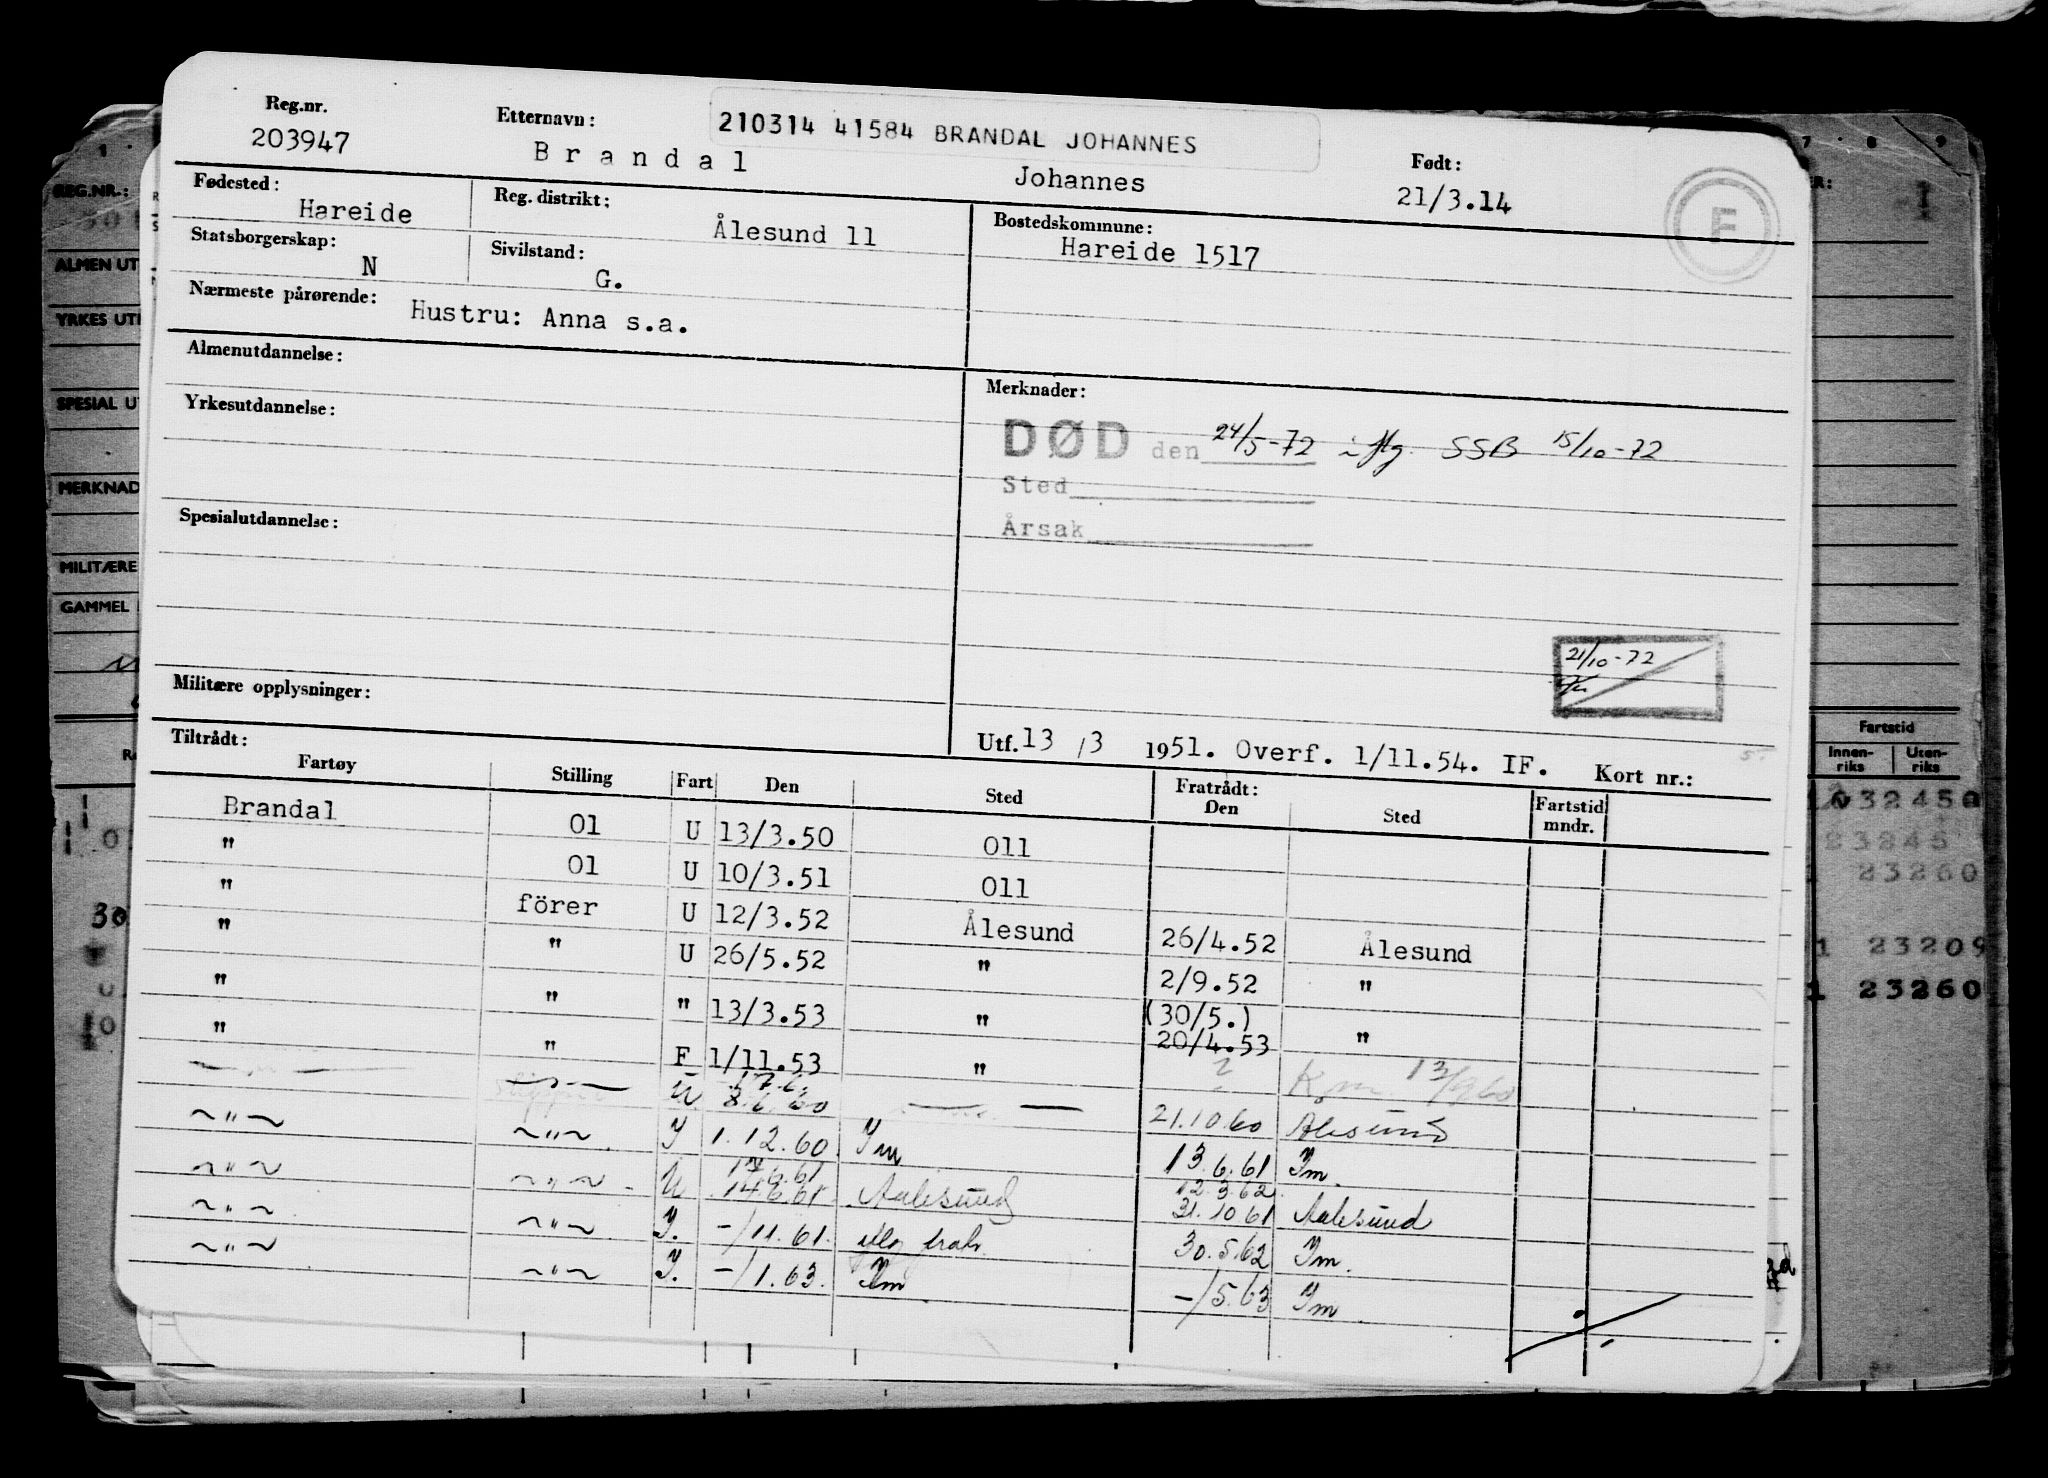 Reg.nr. 203947
Etternavn: Brandal Johannes
210314 41584 BRANDAL JOHANNES
Født: 21/3.14
F
Fødested: Hareide
Reg. distrikt: Ålesund 11
Bostedskommune: Hareide 1517
Statsborgerskap: N
Sivilstand: G.
Nærmeste pårørende: Hustru: Anna s.a.
Almenutdannelse:
Merknader:
Yrkesutdannelse:
DØD den 24/5-72 iflg. SSB 15/10-72
Sted
Årsak
Spesialutdannelse:
21/10-72
Militære opplysninger:
Utf. 13/3 1951. Overf. 1/11.54. IF. Kort nr.:
Tiltrådt: Fratrådt:
Fartøy Stilling Fart Den Sted Den Sted Fartstid mndr.
Brandal Ol U 13/3.50 Oll
" Ol U 10/3.51 Oll
" förer U 12/3.52 Ålesund 26/4.52 Ålesund
" " U 26/5.52 " 2/9.52 "
" " " 13/3.53 " (30/5.) 20/4.53 "
" " F 1/11.53 " ?
— — — " — U 8.6.60 — — 21.10.60 Alesund
~ " ~ ~ " ~ I 1.12.60 Im 13.6.61 Im.
~ " ~ ~ " ~ U 17.6.61 14.6.61 Aalesund 12.3.62 31.10.61 Aalesund
~ " ~ ~ " ~ I. -/11.61. 30.5.62 Im.
~ " ~ ~ " ~ I. -/1.63. Im -/5.63 Im
REG.NR.:
ALMEN UT
YRKES UT
SPESIAL U
MERKNAD
MILITÆRE
GAMMEL
30
7 8 9
Fartstid
Innen-riks Uten-riks
32450
23245
23260
1 23209
1 23260